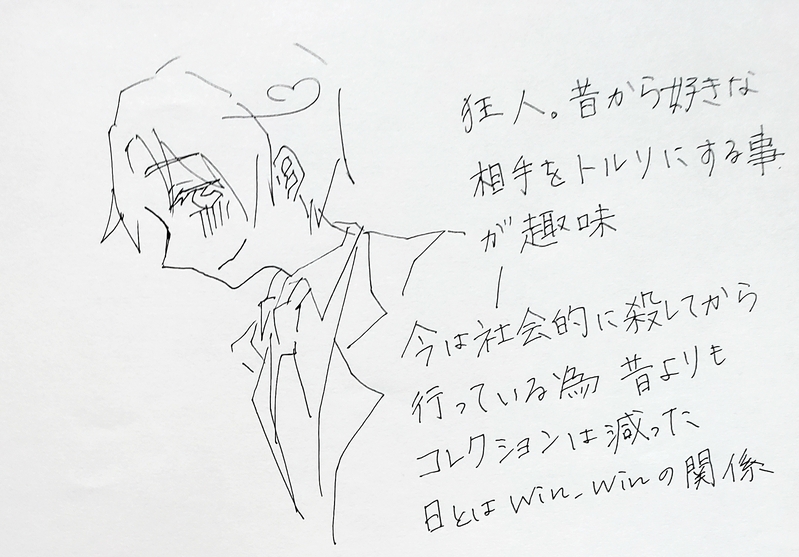 狂人。昔から好きな
相手をトルソにする事
が趣味
今は社会的に殺してから
行っている為 昔よりも
コレクションは減った
日とはwin-winの関係